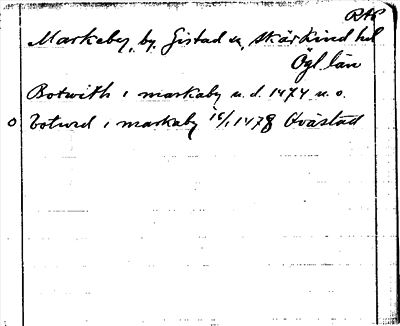 RAP
Markeby, by, Gistad sn, Skärkind hd
Ögl. län
Botwith i markaby u.d. 1474 u.o.
botwid i markaby 16/1 1478 Kvästad